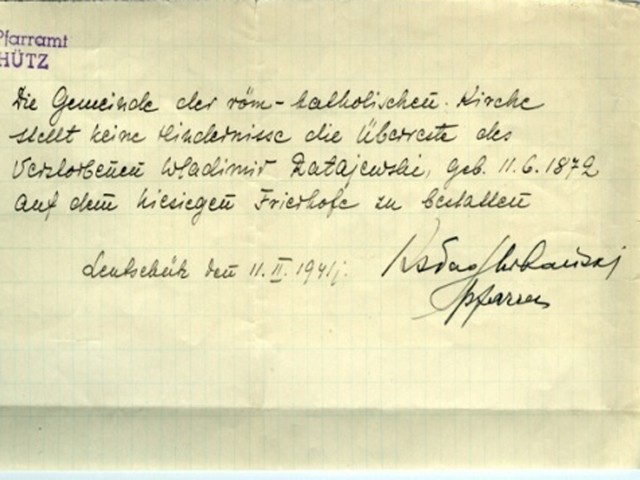 Pfarramt
HÜTZ
Die Gemeinde der röm-katholischen Kirche
stellt keine Hindernisse die Überreste des
Verstorbenen Wladimir Ratajewski, geb. 11.6.1872
auf dem hiesigen Friedhofe zu bestatten
Lentschütz den 11.II.1941j.
Pfarrer